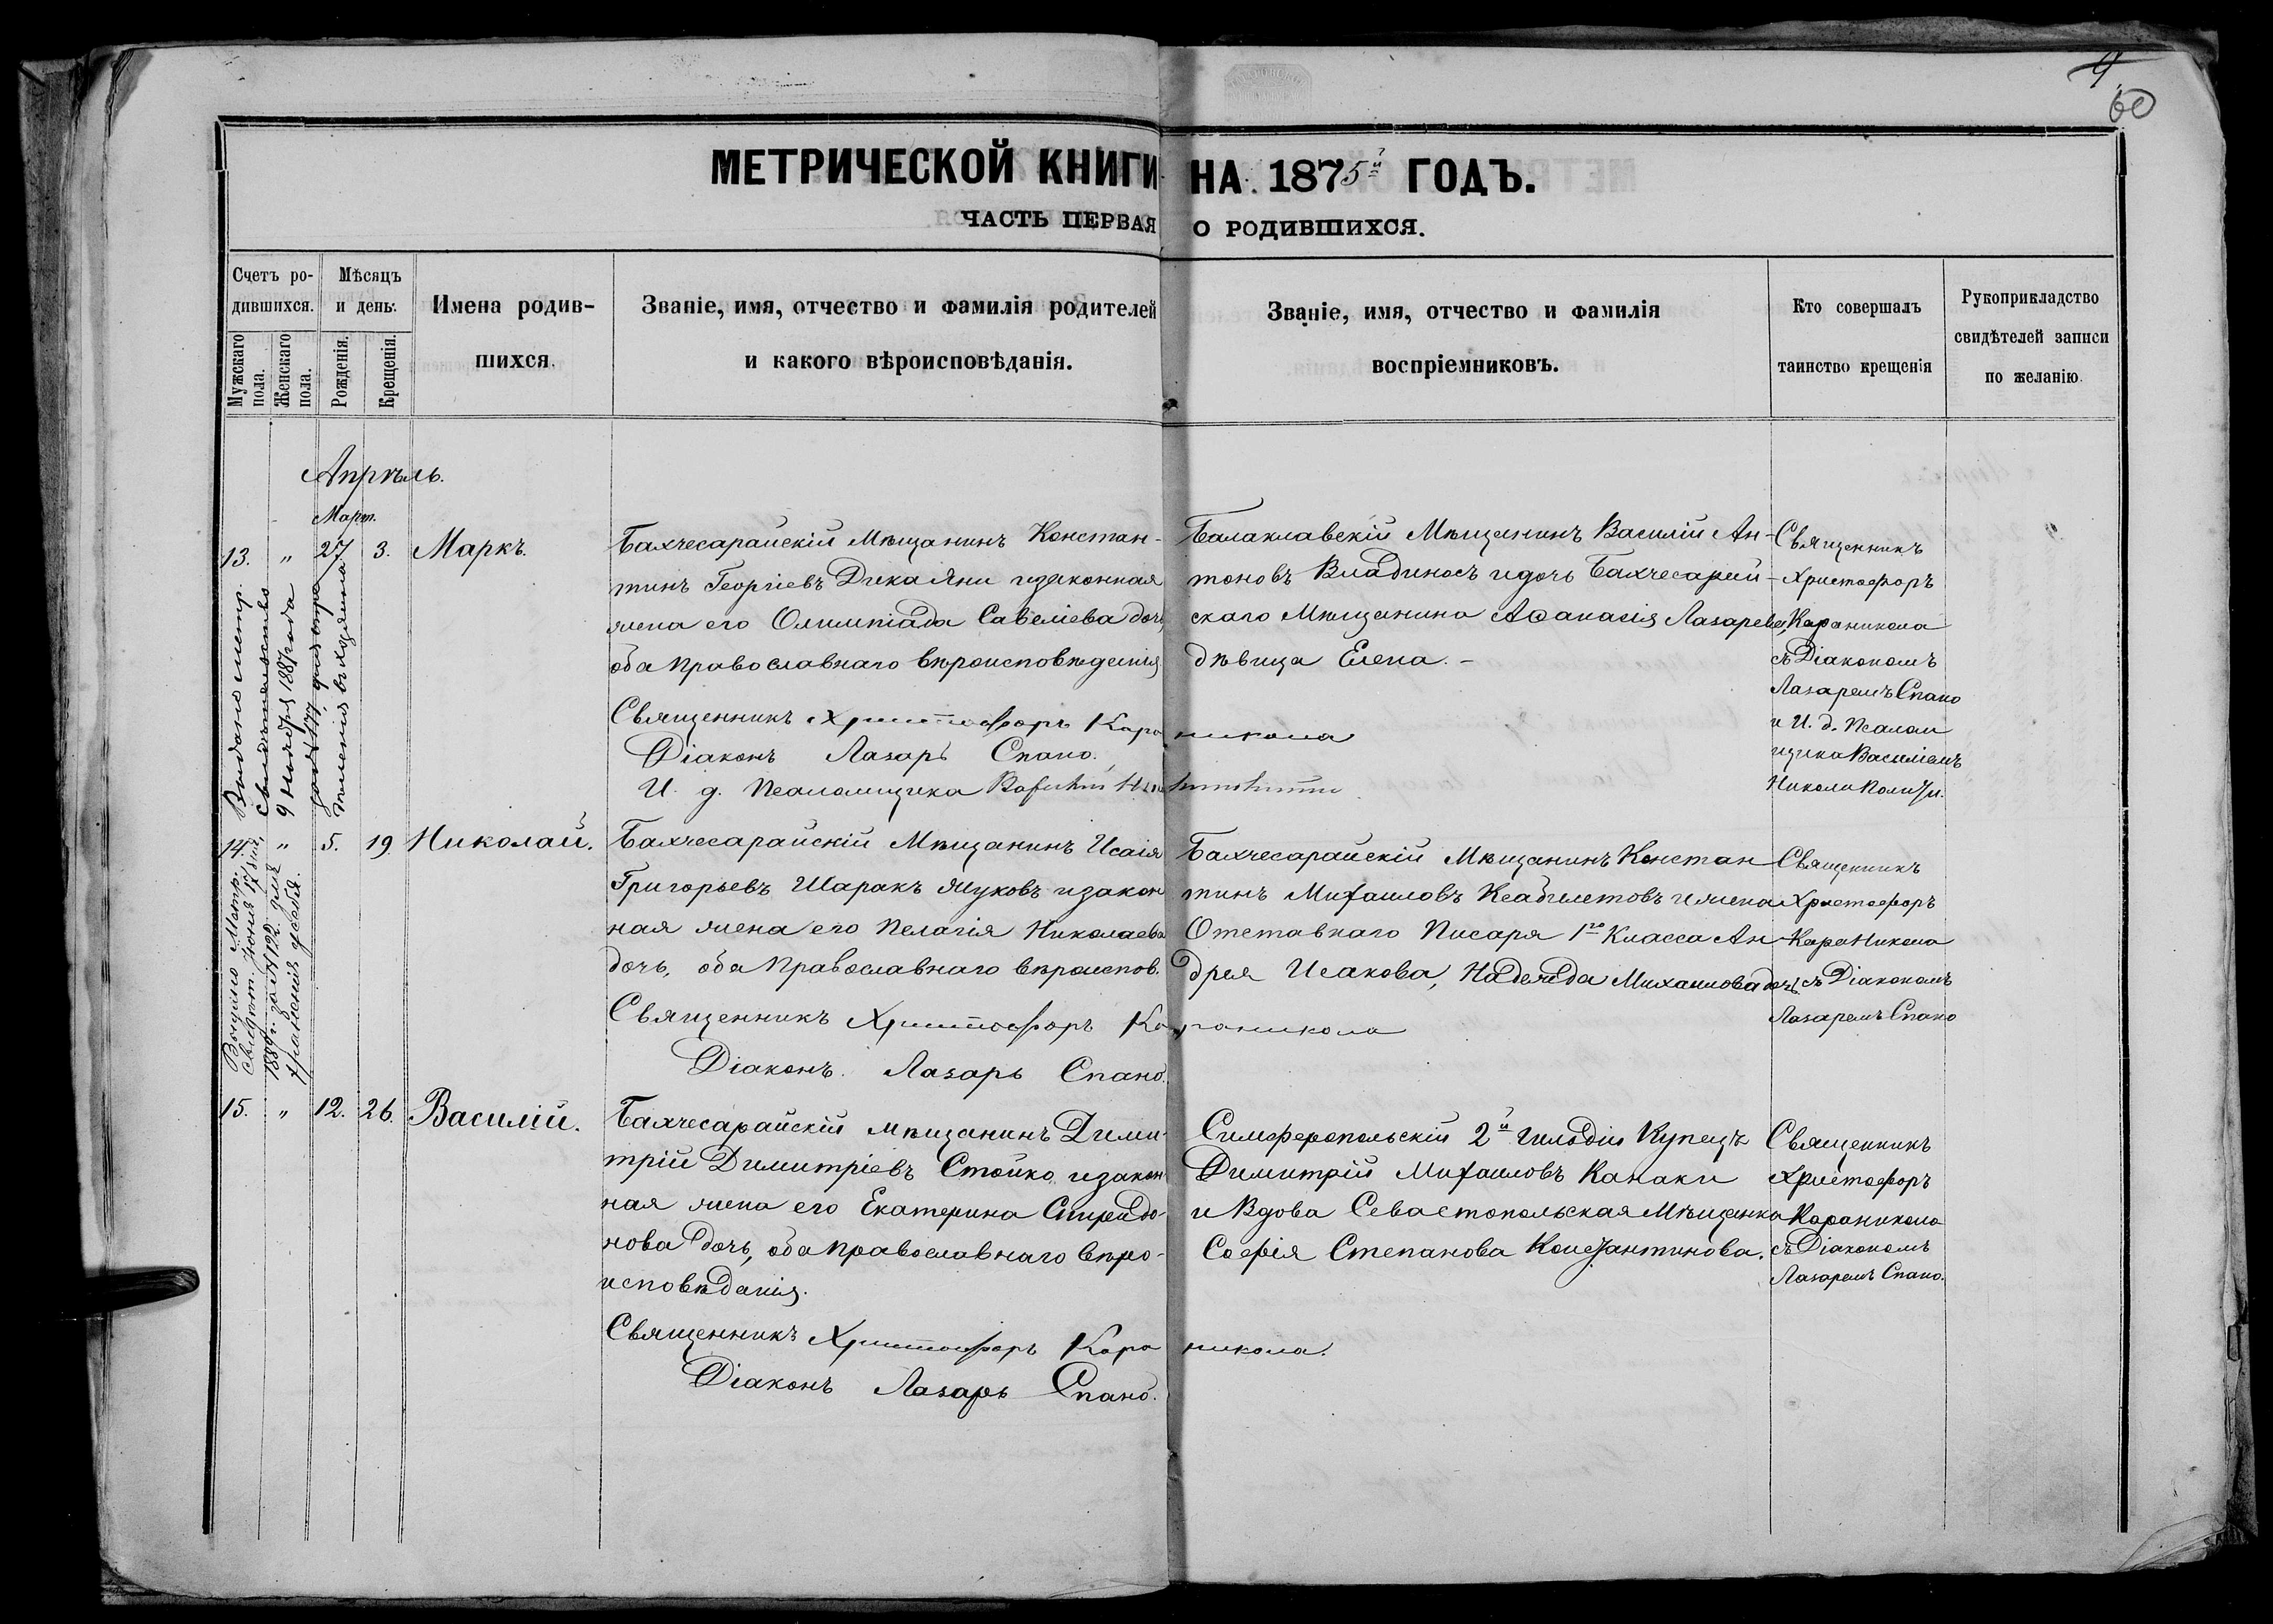 9
60
МЕТРИЧЕСКОЙ КНИГИ НА 1875й ГОДЪ.
ЧАСТЬ ПЕРВАЯ О РОДИВШИХСЯ.
Счетъ ро-
дившихся.
Мужскаго пола.
Женскаго пола.
Мѣсяцъ
и день.
Рожденія.
Крещенія.
Имена родив-
шихся.
Званіе, имя, отчество и фамилія родителей
и какого вѣроисповѣданія.
Званіе, имя, отчество и фамилія
воспріемниковъ.
Кто совершалъ
таинство крещенія
Рукоприкладство
свидѣтелей записи
по желанію.
Апрѣль.
Март.
13. " 27 3. Маркъ.
Выдано метр.
свидѣтельство
9 Ноября 1887 года
за № 177
Бахчесарайскій Мѣщанинъ Констан-
тинъ Георгіевъ Дикаяни изаконная
жена его Олимпіада Савеліева дочь,
оба православнаго вѣроисповѣденія
Священникъ Христофоръ Караникола
Діаконъ Лазарь Спано.
И. д. Псаломщика
Балаклавскій Мѣщанинъ Василій Ан-
тоновъ Владиносъ идочь Бахчесарай-
скаго Мѣщанина Аѳанасія Лазарева,
дѣвица Елена. -
Священникъ
Христофоръ
Караникола
съ Діакономъ
Лазаремъ Спано
и И. д. Псалом
щика Василіемъ
Николи Поли
14. " 5. 19. Николай.
Метр.
Свидѣт. Іюня 17 дня,
1889 г. за № 192
Бахчесарайскій Мѣщанинъ Исаія
Григорьевъ Шаракъ Жуковъ изакон
ная жена его Пелагія Николаева
дочь, оба Православнаго вѣроиспов.
Священникъ Христофоръ Караникола
Діаконъ. Лазарь Спано.
Бахчесарайскій Мѣщанинъ Констан
тинъ Михаиловъ Кеабчлетовъ ижена
Отставнаго Писаря 1го Класса Ан-
дрея Исакова, Надежда Михаилова дочь
Священникъ
Христофоръ
Караникола
съ Діакономъ
Лазаремъ Спано
15. " 12. 26. Василій.
Бахчесарайскій мѣщанинъ Дими-
трій Димитріевъ Стойко изакон-
ная жена его Екатерина Спиридо-
нова дочь, оба православнаго вѣро-
исповѣданія.
Священникъ Христофоръ Караникола.
Діаконъ Лазарь Спано.
Симферопольскій 2й гильдіи Купецъ
Димитрій Михаиловъ Канаки
и Вдова Севастопольская Мѣщанка
Софія Степанова Константинова.
Священникъ
Христофоръ
Караникола
съ Діакономъ
Лазаремъ Спано.